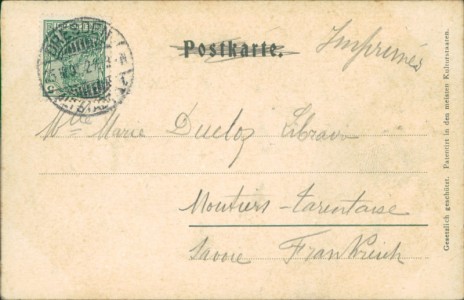 DRESDEN
ALTSTADT
Postkarte.
Imprimés
Mlle Marie Ducloz Libraire
Moutiers-tarentaise
Savoie Frankreich
Gesetzlich geschützt. Patentirt in den meisten Kulturstaaten.